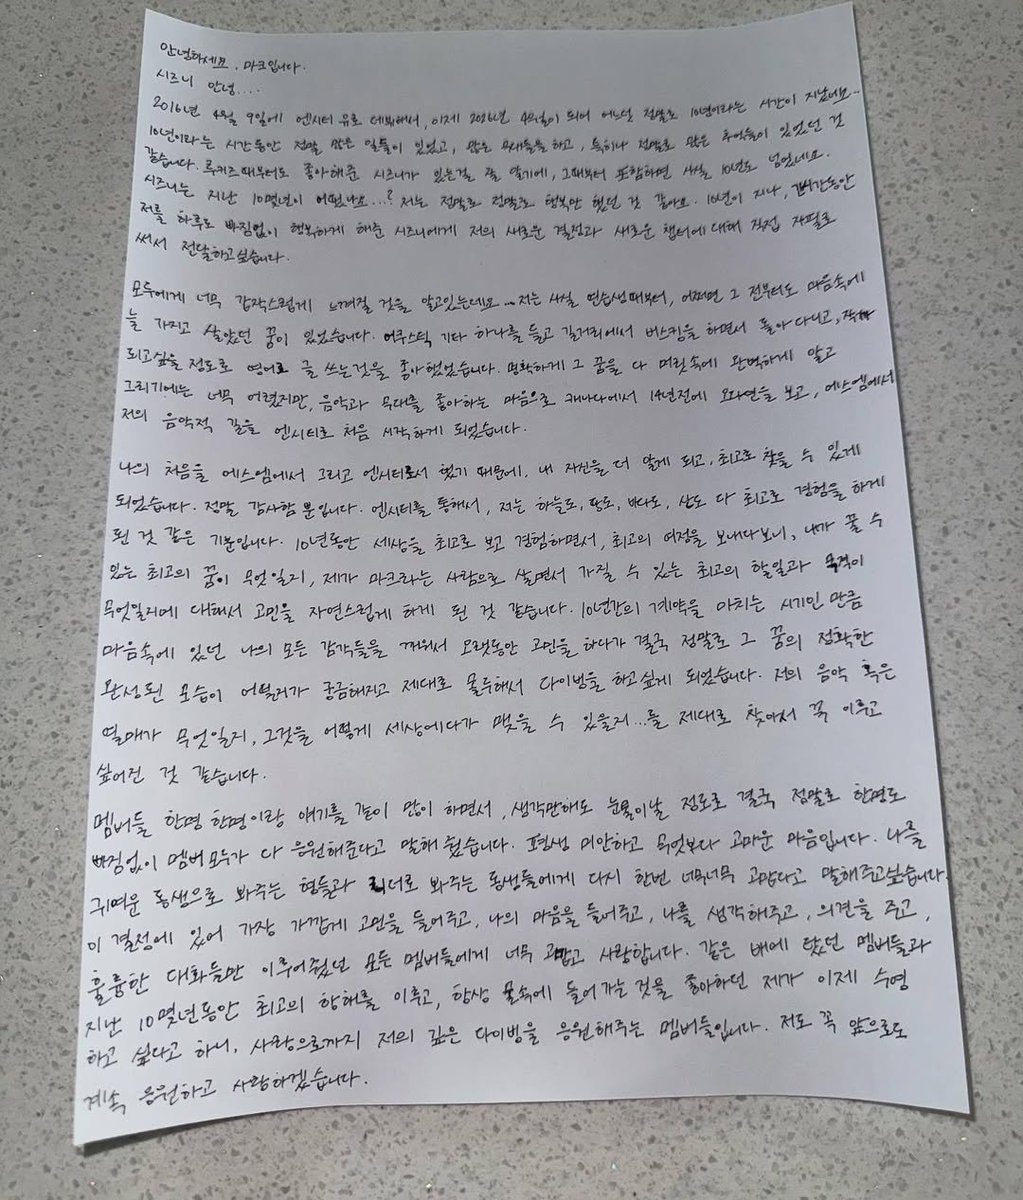 안녕하세요, 마크입니다.
시즈니 안녕....
2016년 4월 9일에 엔시티 유로 데뷔해서, 이제 2026년 4월이 되어 어느덧 정말로 10년이라는 시간이 지났네요...
10년이라는 시간동안 정말 많은 일들이 있었고, 많은 무대들을 하고, 특히나 정말로 많은 추억들이 있었던 것
같습니다. 루키즈때부터도 좋아해준 시즈니가 있는걸 잘 알기에, 그때부터 포함하면 사실 10년도 넘었네요.
시즈니는 지난 10몇년이 어땠나요...? 저는 정말로 정말로 행복만 했던 것 같아요. 10년이 지나, 긴시간동안
저를 하루도 빠짐없이 행복하게 해준 시즈니에게 저의 새로운 결정과 새로운 챕터에 대해 직접 자필로
써서 전달하고싶습니다.
모두에게 너무 갑작스럽게 느껴질 것을 알고있는데요... 저는 사실 연습생때부터, 어쩌면 그 전부터도 마음속에
늘 가지고 살았던 꿈이 있었습니다. 어쿠스틱 기타 하나를 들고 길거리에서 버스킹을 하면서 돌아다니고, 작가가
되고싶을 정도로 영어로 글 쓰는것을 좋아했었습니다. 명확하게 그 꿈을 다 머릿속에 완벽하게 알고
그리기에는 너무 어렸지만, 음악과 무대를 좋아하는 마음으로 캐나다에서 14년전에 오디션을 보고, 에스엠에서
저의 음악적 길을 엔시티로 처음 시작하게 되었습니다.
나의 처음을 에스엠에서 그리고 엔시티로서 했기 때문에, 내 자신을 더 알게 되고, 최고로 찾을 수 있게
되었습니다. 정말 감사할 뿐입니다. 엔시티를 통해서, 저는 하늘도, 땅도, 바다도, 산도 다 최고로 경험을 하게
된 것 같은 기분입니다. 10년동안 세상을 최고로 보고 경험하면서, 최고의 여정을 보내다보니, 내가 꿀 수
있는 최고의 꿈이 무엇일지, 제가 마크라는 사람으로 살면서 가질 수 있는 최고의 할일과 목적이
무엇일지에 대해서 고민을 자연스럽게 하게 된 것 같습니다. 10년간의 계약을 마치는 시기인 만큼
마음속에 있던 나의 모든 감각들을 깨워서 오랫동안 고민을 하다가 결국 정말로 그 꿈의 정확한
완성된 모습이 어떨러가 궁금해지고 제대로 몰두해서 다이빙을 하고싶게 되었습니다. 저의 음악 혹은
열매가 무엇일지, 그것을 어떻게 세상에다가 맺을 수 있을지...를 제대로 찾아서 꼭 이루고
싶어진 것 같습니다.
멤버들 한명 한명이랑 얘기를 같이 많이 하면서, 생각만해도 눈물이날 정도로 결국 정말로 한명도
빠짐없이 멤버 모두가 다 응원해준다고 말해줬습니다. 평생 미안하고 무엇보다 고마운 마음입니다. 나를
귀여운 동생으로 봐주는 형들과 리더로 봐주는 동생들에게 다시 한번 너무너무 고맙다고 말해주고싶습니다.
이 결정에 있어 가장 가깝게 고민을 들어주고, 나의 마음을 들어주고, 나를 생각해주고, 의견을 주고,
훌륭한 대화들만 이루어줬던 모든 멤버들에게 너무 고맙고 사랑합니다. 같은 배에 탔던 멤버들과
지난 10몇년동안 최고의 항해를 이루고, 항상 물속에 들어가는 것을 좋아하던 제가 이제 수영
하고 싶다고 하니, 사랑으로까지 저의 깊은 다이빙을 응원해주는 멤버들입니다. 저도 꼭 앞으로도
계속 응원하고 사랑하겠습니다.